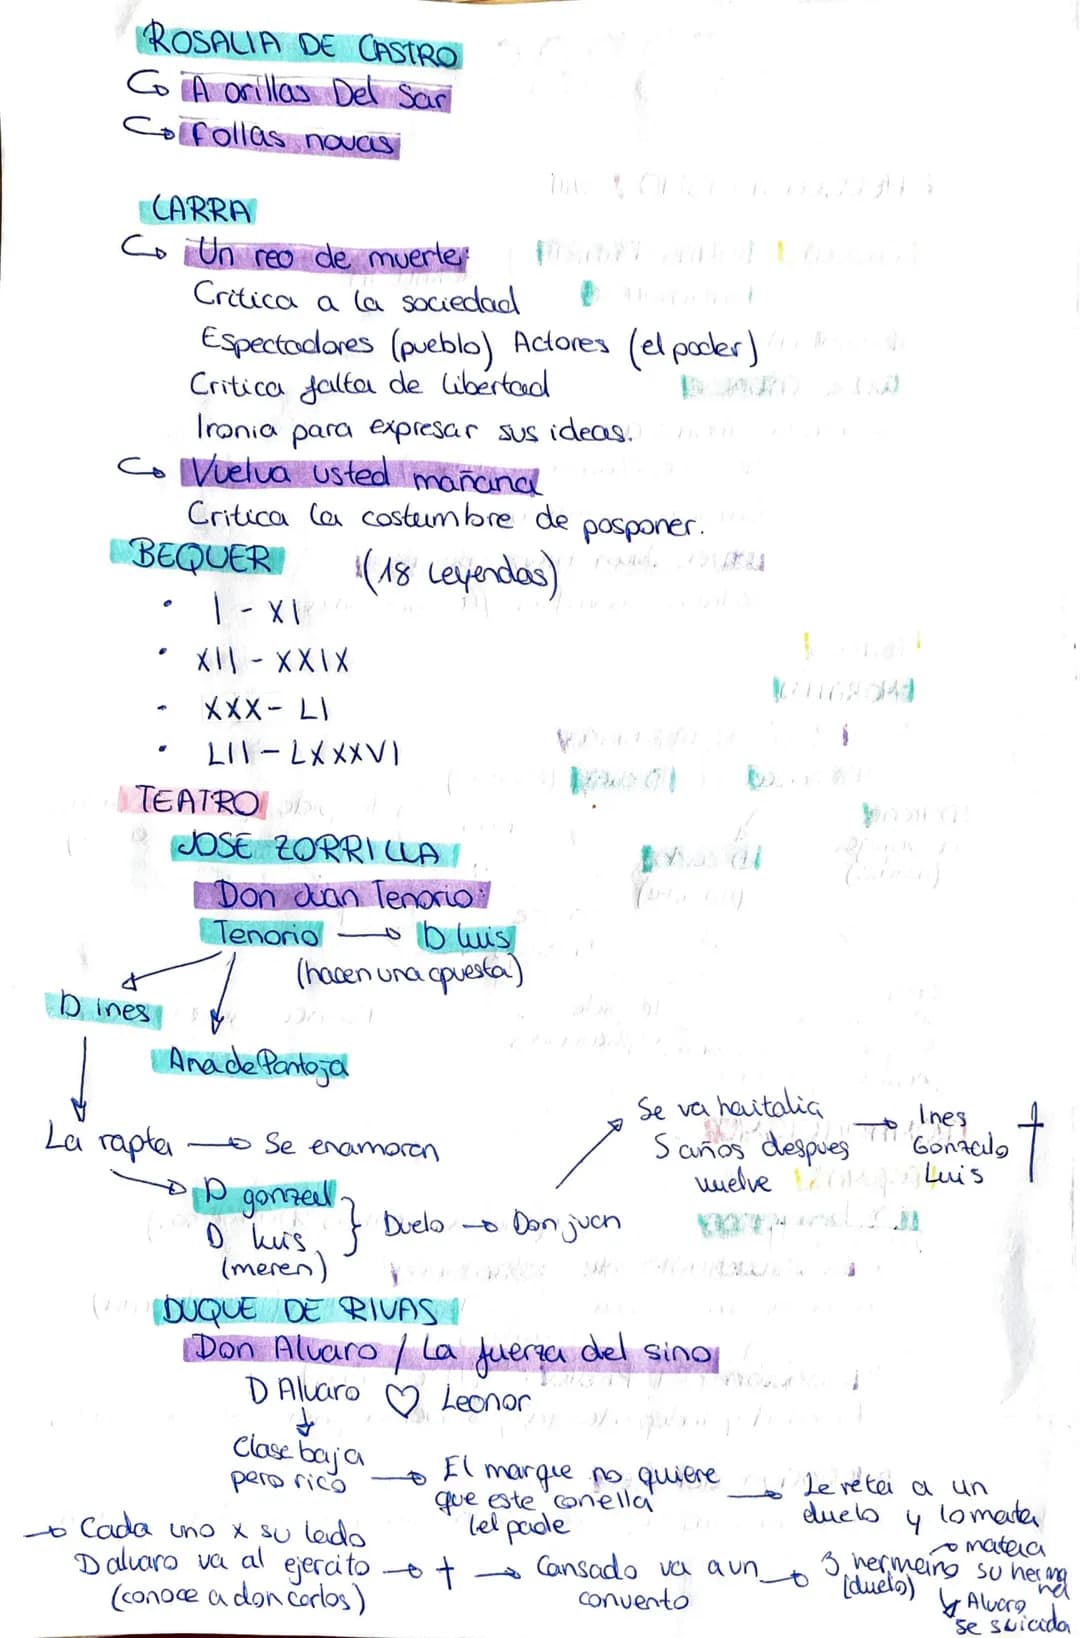 ROSALIA DE CASTRO
A orillas Del Sar
Follas novas
LARRA
Un reo de muerte:
Critica a la sociedad
Espectadores (pueblo) Actores (el poder)
Critica falta de libertad
Ironia para expresar sus ideas.
Vuelva usted mañana
Critica la costumbre de posponer.
BEQUER (18 Leyendas)
I - XI
XII - XXIX
XXX - LI
LII - LXXXVI
TEATRO
JOSE ZORRILLA
Don Juan Tenorio:
Tenorio → D luis
(hacen una apuesta)
D. ines
Ana de Pantoja
La rapta → Se enamoran
Se va haitalia
5 años despues
vuelve
→ Ines
Gonzalo
Luis
†
D gonzal
D luis
(meren)
} Duelo → Don juan
DUQUE DE RIVAS
Don Alvaro / La fuerza del sino
D Alvaro ♡ Leonor
Clase baja
pero rico
→ El marque no quiere
que este conella
(el padre
→ Le reta a un
duelo y lo mata
→ Cada uno x su lado
D alvaro va al ejercito → † → Cansado va a un → 3 hermano
(conoce a don carlos)
convento
(duelo)
→ mata a
su hermana
Alvaro
se suicida